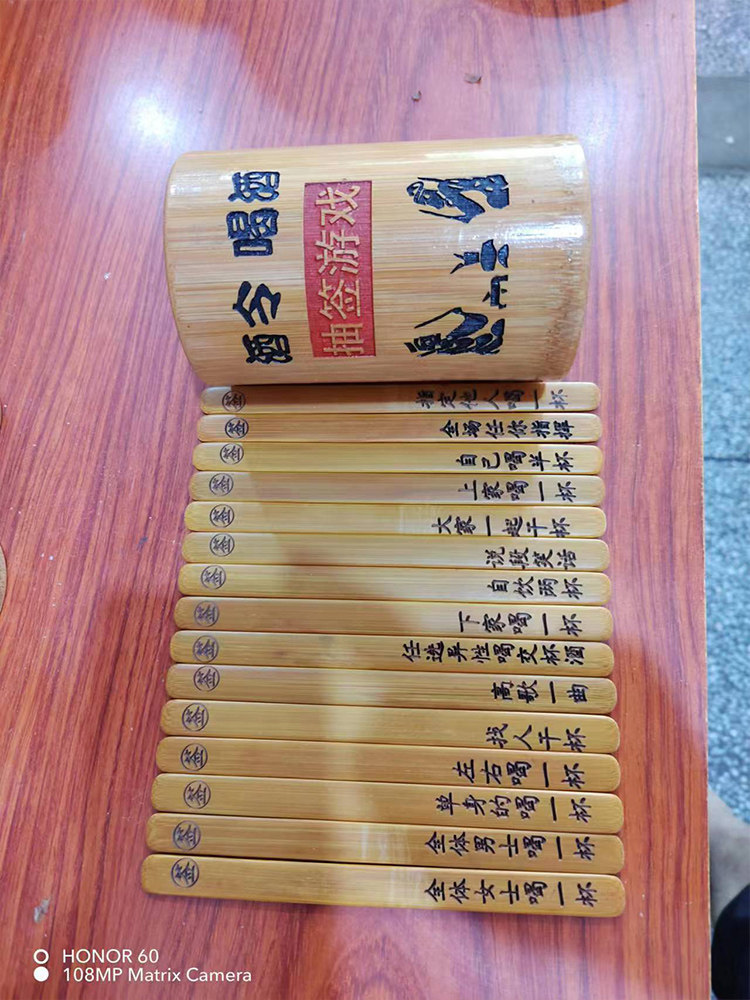 酒令 喝酒
抽签游戏
签 指定他人喝一杯
签 全场任你指挥
签 自己喝半杯
签 上家喝一杯
签 大家一起干杯
签 说段笑话
签 自饮两杯
签 下家喝一杯
签 任选异性喝交杯酒
签 高歌一曲
签 找人干杯
签 左右喝一杯
签 单身的喝一杯
签 全体男士喝一杯
签 全体女士喝一杯
HONOR 60
108MP Matrix Camera